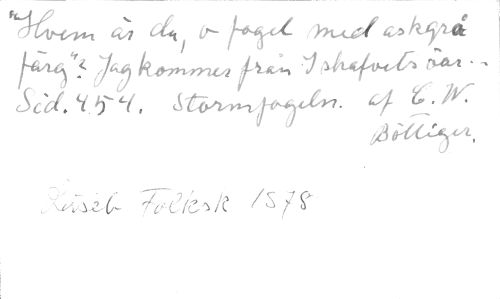 "Hvem är du, o fogel med askgrå
färg"? Jag kommer från Ishafvets öar...
Sid. 454. Stormfogeln. af C. W.
Böttiger.
Läseb Folksk 1878